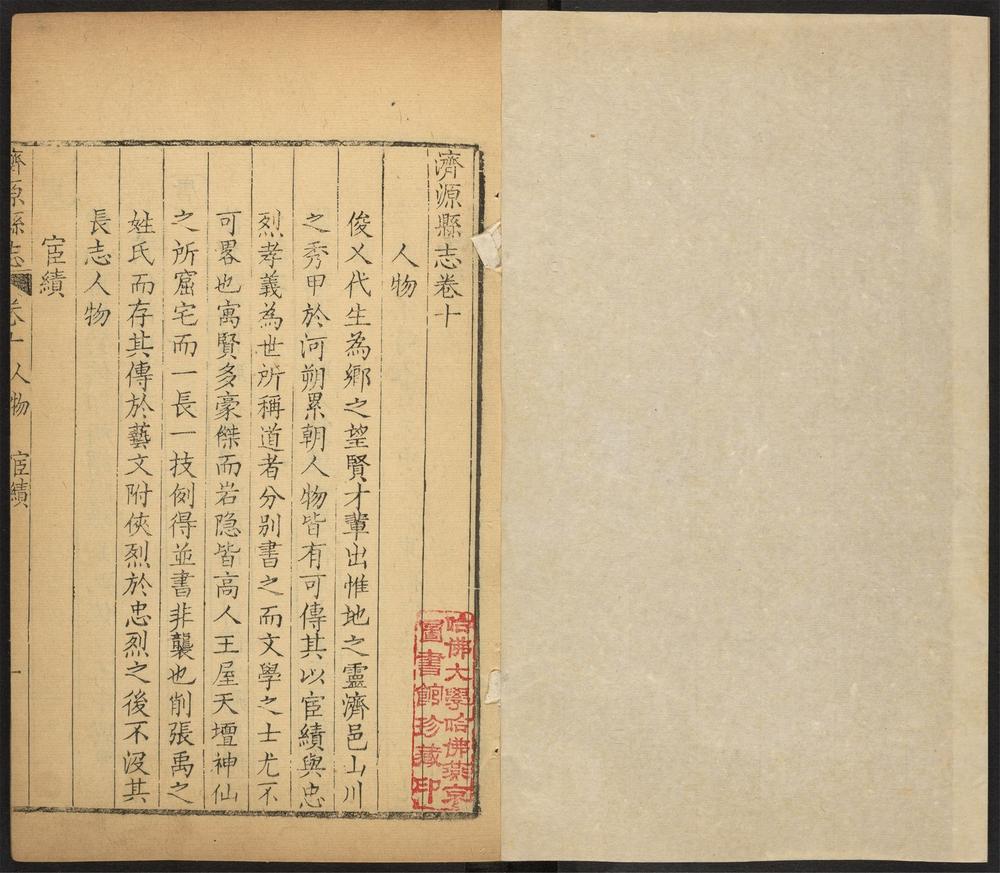 濟源縣志卷十
人物
俊乂代生為鄉之望賢才輩出惟地之靈濟邑山川
之秀甲於河朔累朝人物皆有可傳其以宦績與忠
烈孝義為世所稱道者分别書之而文學之士尤不
可畧也寓賢多豪傑而岩隐皆高人王屋天壇神仙
之所窟宅而一長一技例得並書非襲也削張禹之
姓氏而存其傳於藝文附俠烈於忠烈之後不沒其
長志人物
宦績
濟源縣志 卷十 人物 宦績 一
哈佛大學哈佛燕京
圖書館珍藏印